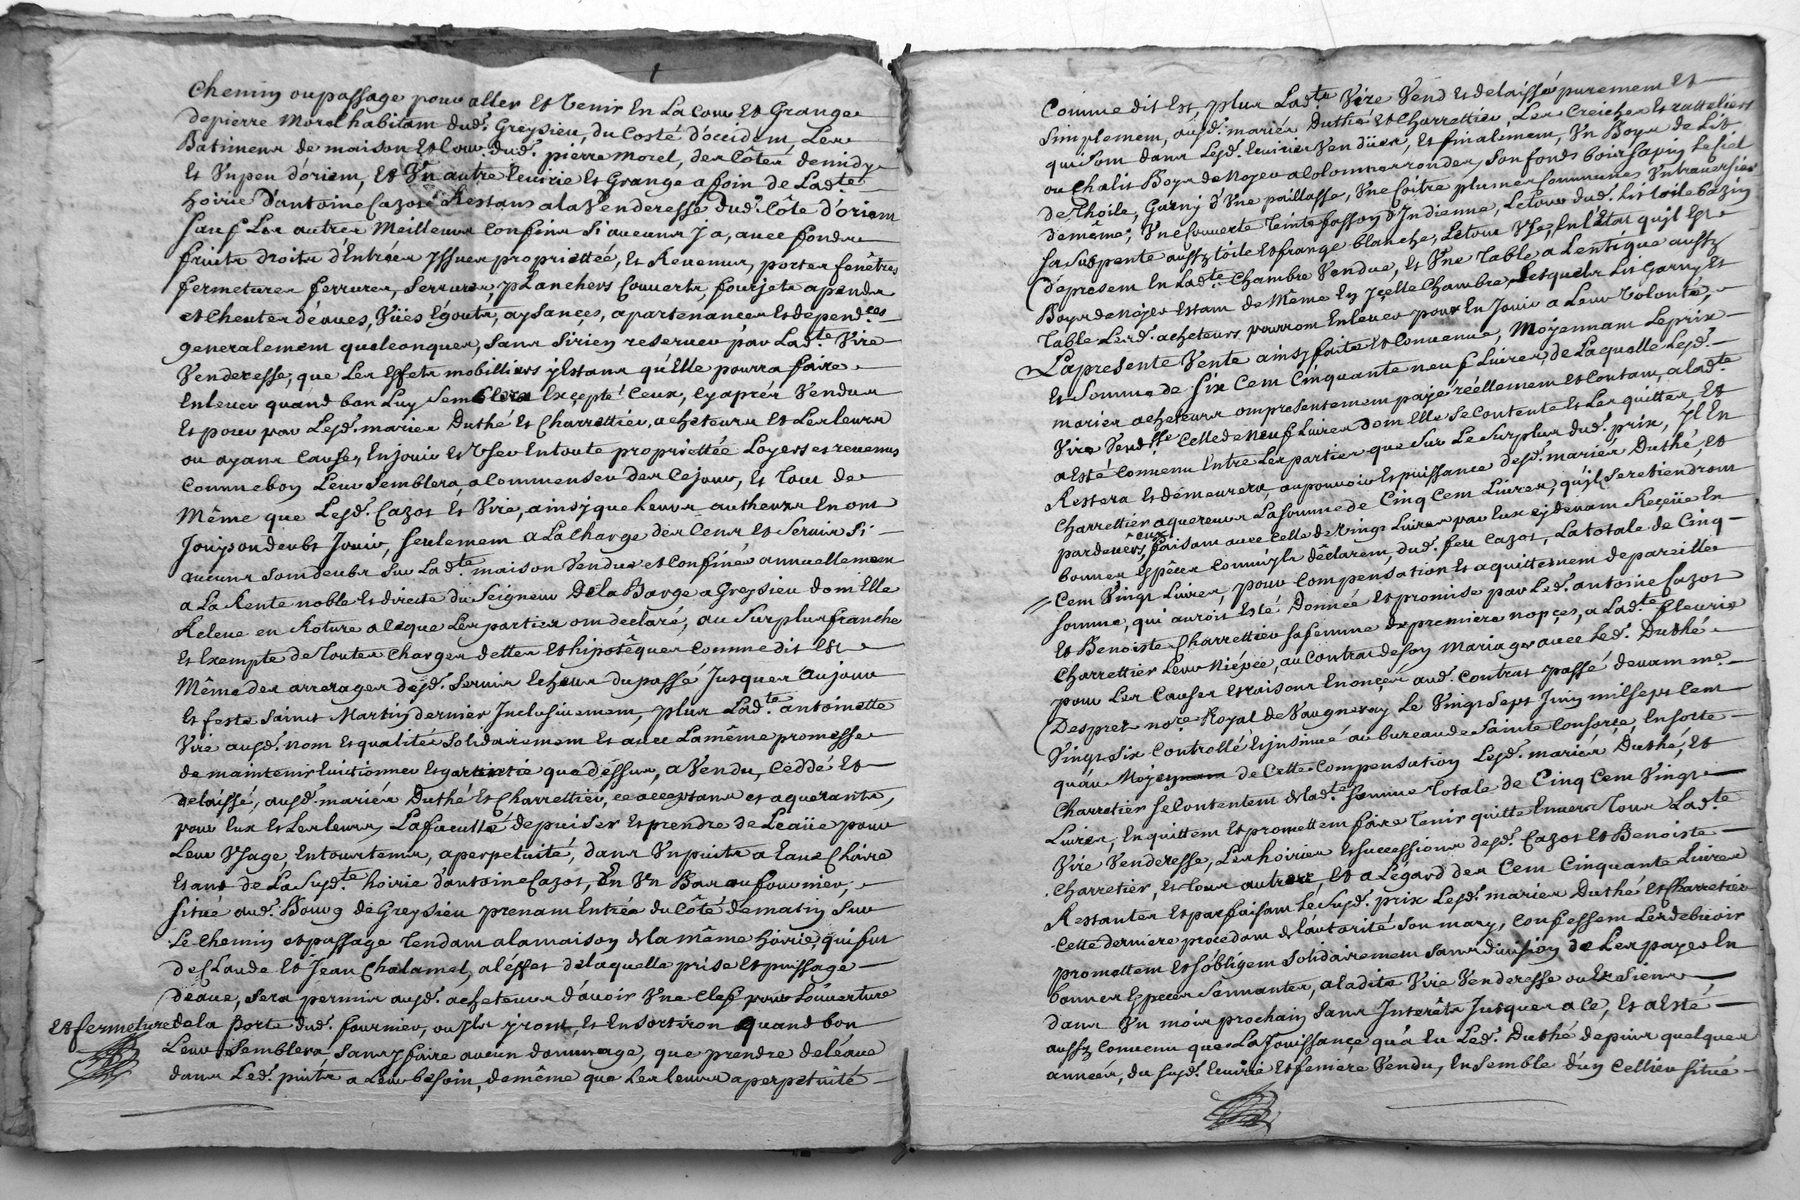 chemin ou passage pour aller et venir en la cour et Grange
de pierre Morel habitant dud. Greysieu, du Costé d'occident, Les
Batimens de maison et Cour dud. pierre Morel, des Côtés de midy
et Un peu d'orient, et Un autre Ecuirie et Grange a foin de Lad.te
hoirie d'antoine Cazot Restans a la Venderesse dud. Côté d'orient
sauf Les autres Meilleurs Confins si aucuns y a, avec fonds
fruits droits d'Entrées yssues proprietteé, et Revenus, portes fenêtres
fermetures ferrures, serrures, planchers Couverts, fourjets apends
et cheutes d'eaues, Vües Egouts, aysances, apartenances et depend.ces
generalement quelconques, sans sirien reserver par Lad.te Vire
Venderesse, que Les Effets mobilliers y Estans qu'Elle pourra faire
Enlever quand bon Luy semblera Excepté Ceux, cy aprés Vendus
Et pour par Lesd. mariés Duthé et Charrettier, acheteurs et Les leurs
ou ayans Cause, En jouir et User En toute proprietteé Loyers et revenus
comme bon Leur semblera, a Commenser dez Ce jour, et Tout de
Même que Lesd. Cazot et Vire, ainsy que Leurs autheurs En ont
Jouy ou deubt Jouir, seulement a La Charge des Cens et servis si
aucuns sont deubs sur Lad.te maison Vendue et Confinée annuellement
a La Rente noble et directe du Seigneur De la Barge a Greysieu dont Elle
Releve en Roture a ce que Les parties ont declaré, au surplus franche
et Exempte de Toutes charges dettes et hipotêques comme dit Est
Même des arrerages desd. servis Echeus du passé Jusques aujour
et feste Saint Martin dernier Inclusivement, plus Lad.te antoinette
Vire ausd. nom et qualités solidairement et avec La même promesse
de maintenir Euictionner et garentir que dessus, a Vendu, Ceddé et
delaissé, ausd. mariés Duthé et Charrettier, ce acceptans et aquerants,
pour Eux et Les leurs, La faculté de puiser et prendre de L'eaüe pour
Leur Usage, En tous tems, a perpetuité, dans Un puits a Eaue Claire
Etant de La susd.te hoirie d'antoine Cazot, En Un Bas ou fournier,
situé aud. Bourg de Greysieu prenant Entrée du Côté de matin sur
Le chemin et passage Tendant a la maison de la même hoirie, qui fut
de Claude et Jean Chalamel, a l'effet de laquelle prise et puissage
deaue, sera permis ausd. acheteurs d'avoir Une Clef pour L'ouverture
Et fermeture de la porte dud. fournier, ou Ils y iront et En sortiron quand bon
Leur semblera, sans y faire aucun dommage, que prendre de l'éaue
dans Led. puits a Leur besoin, de même que Les leurs a perpetuité
Comme dit Est, plus Lad.te Vire Vend et delaisse purement et
simplement, ausd. mariés Duthé et Charrettier, Les Creiches et rattelliers
qui sont dans Lesd. Ecuiries Vendües, et finalement, Un Boys de Lit
ou Chalit Boys de Noyer a Colonnes rondes, son fonds bois sapin Le Ciel
de Thoile, Garny d'Une paillasse, Une Coitre plumes Communes Un traversier
de même, Une Couverte Teinte fasson d'Indienne, Le tour dud. Lit toile bazin
sa suspente aussy toile et frange blanche, Le tout Usé, En L'Etat qu'il Est
de present En Lad.te Chambre Vendue, et Une Table a L'entique aussy
Boys de Noyer Estant de Même En Icelle Chambre, Lesquels Lit Garny et
Table Lesd. acheteurs pourront Enlever pour En Jouir a Leur Volonté,
La presente Vente ainsy faite et Convenue, Moyennant Le prix
et Somme de six Cent Cinquante neuf Livres, de Laquelle Lesd.
mariés acheteurs ont presentement payé réellement et Contant, a lad.te
Vire Vend.sse Celle de Neuf Livres dont Elle se Contente et Les quitte, et
a Esté Convenu Entre Les parties que sur Le Surplus dud. prix, Il En
Restera et démeurera, au pouvoir et puissance desd. mariés Duthé, et
Charrettier aquereurs La somme de Cinq Cent Livres, qu'Ils se retiendront
par devers eux, faisant avec Celle de Vingt Livres par Eux cy devant Reçeüe En
bonnes Espèces Comm'Ils déclarent, dud. feu Cazot, La totale de Cinq
Cent Vingt Livres, pour Compensation et aquittement de pareille
somme, qui auroit Esté Donnée et promise par Led. antoine Cazot
et Benoiste Charrettier sa femme de premieres nopçes, a Lad.te fleurie
Charrettier Leur Niépce, au Contrat de son Mariage avec Led. Duthé
pour Les Causes et raisons Enonçées aud. Contrat passé devant me.
Despret no.re Royal de Vaugneray Le Vingt Sept Juin mil sept Cent
Vingt Six Controllé et insinué au bureau de Sainte Consorçe, En sorte
qu'au Moyen de Cette Compensation Lesd. mariés Duthé, et
Charretier se Contentent de lad.te somme Totale de Cinq Cent Vingt
Livres, En quittent et promettent faire Tenir quitte Envers Tous Lad.te
Vire Venderesse, Les hoiries et successions desd. Cazot et Benoiste
Charretier, et tous autres, Et a L'egard des Cent Cinquante Livres
Restantes et parfaisant Le susd. prix Lesd. mariés Duthé et Charretier
Cette derniere procedant de l'autorité son mary, Confessent Les debvoir
promettent et s'obligent solidairement sans division de Les payer En
bonnes Especes sonnantes, a ladite Vire Venderesse ou Es siens
dans Un mois prochain sans Interêts Jusques a Ce, et a Esté
aussy Convenu que La Jouissance qu'a Eu Led. Duthé depuis quelques
années, du susd. Ecuirie et feniere Vendu, Ensemble d'un Cellier situé